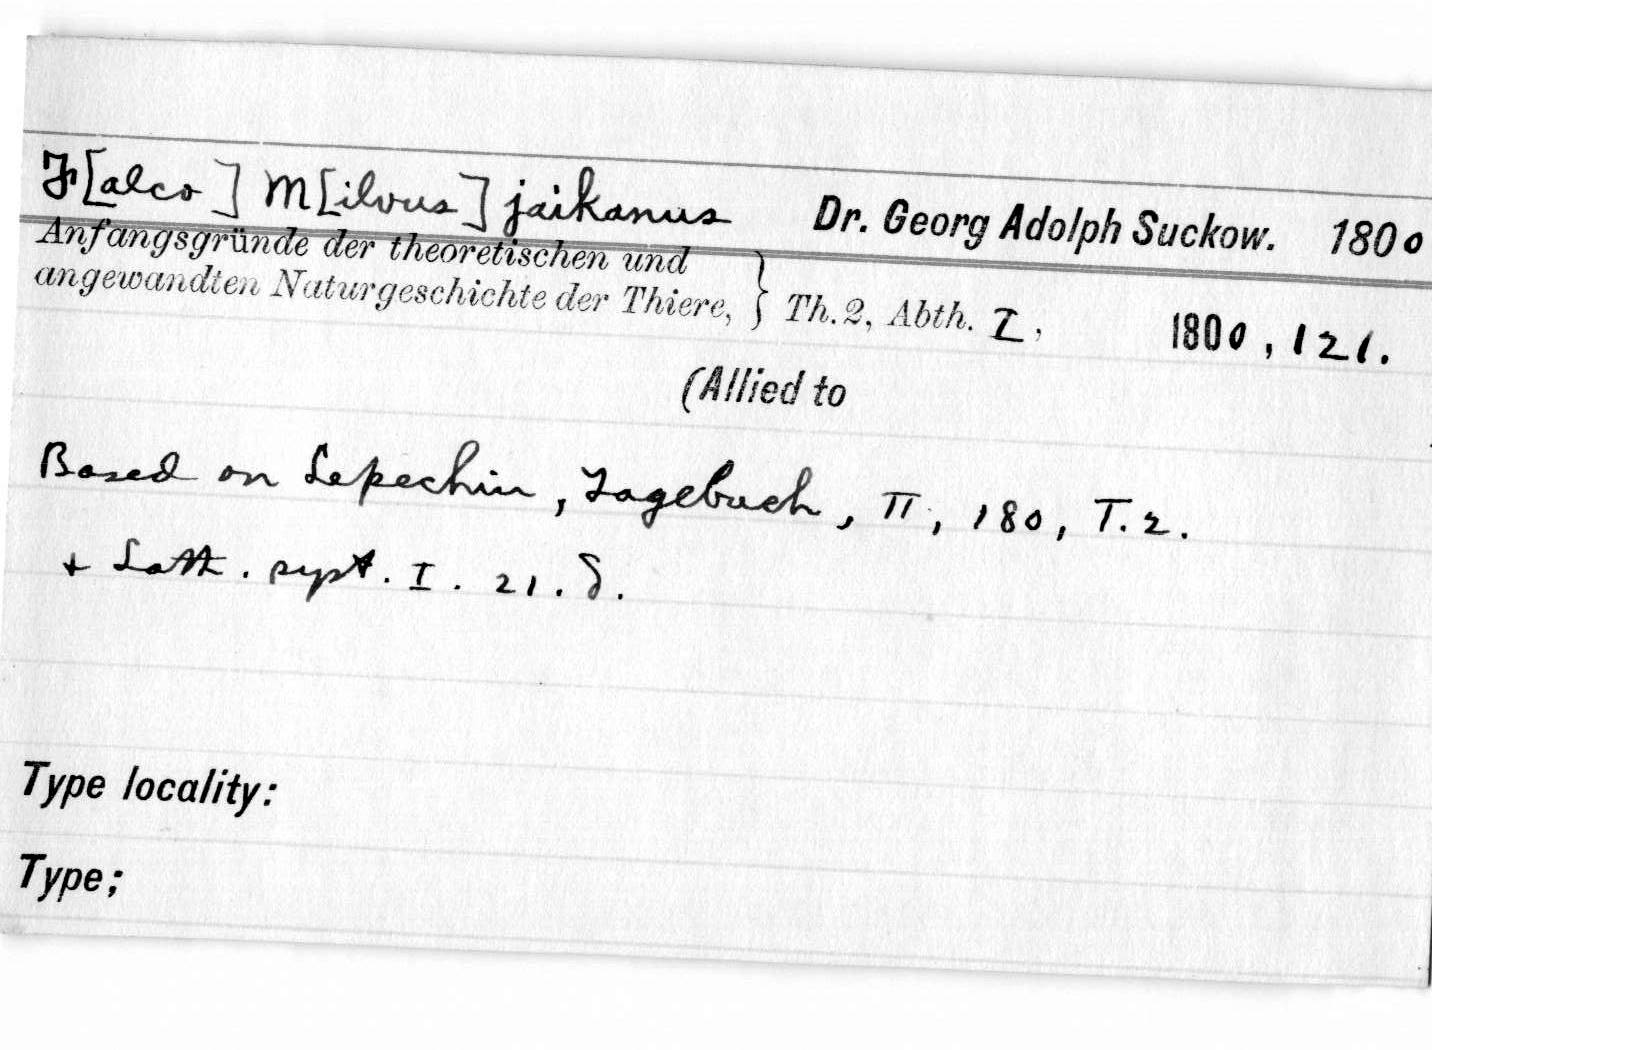 F[alco] M[ilvus] jaikanus Dr. Georg Adolph Suckow. 1800
Anfangsgründe der theoretischen und
angewandten Naturgeschichte der Thiere, } Th. 2, Abth. I, 1800, 121.
(Allied to
Based on Lepechin, Tagebuch, II, 180, T. 2.
+ Lath. syst. I. 21. δ.
Type locality:
Type;